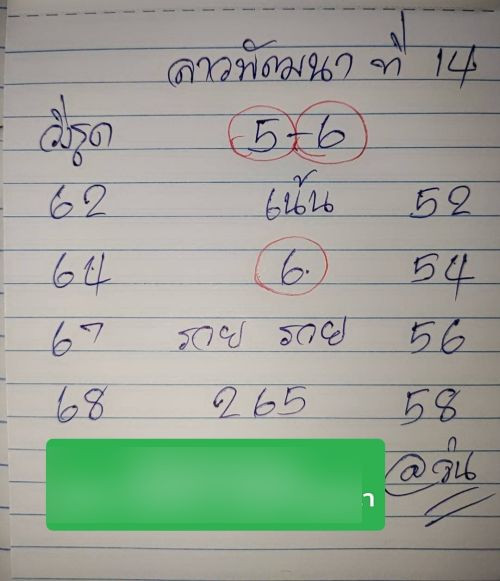 ลาวพัฒนา ที่ 14
มีรูด 5-6
62 เน้น 52
64 6. 54
67 รวย รวย 56
68 265 58
@รุ่น
า